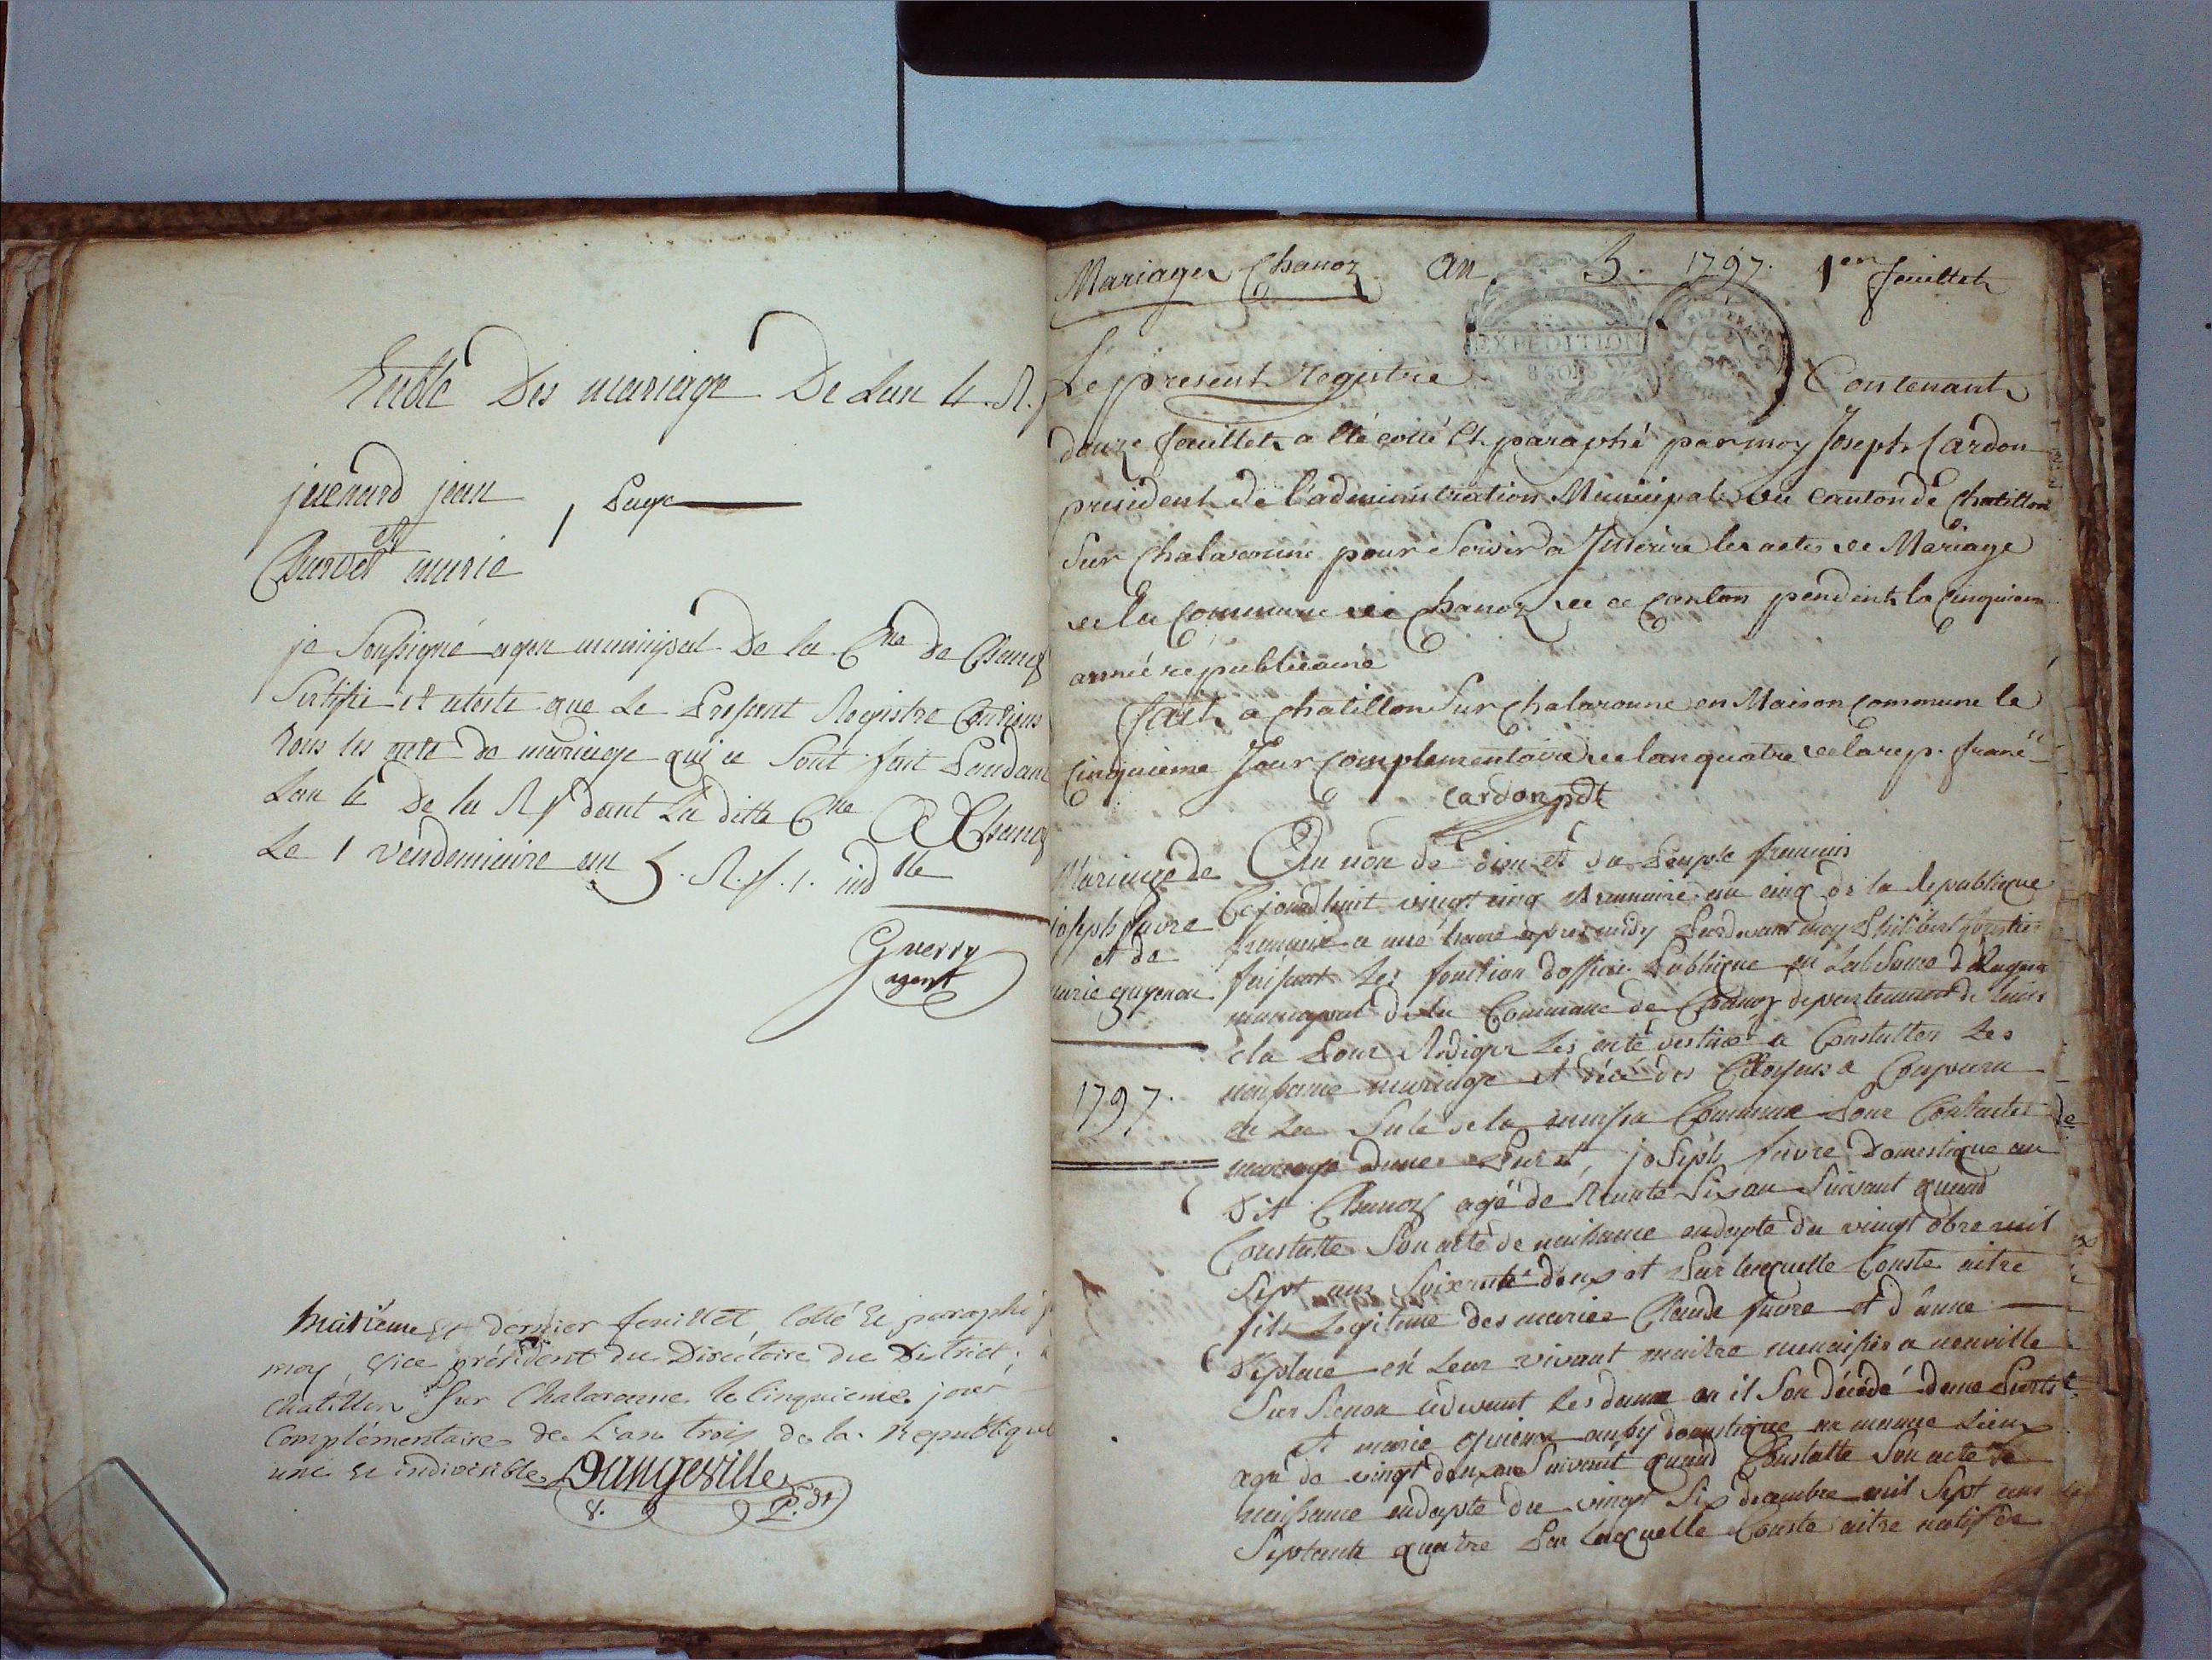 Table Des mariage De Lan 4. R.
juenard jean
et
1 Page
Charvet marie
je Soussigné agen municipal De la Cne de Chanoz
Sertifie et ateste que Le Present Registre Contiens
tous les acte de mariage qui ce Sont fait Pandant
Lan 4 De la R f dant La ditte Cne A Chanoz
Le 1 vendemiaire an 5. R. f. 1. ind ble
Guerry
agent
huitieme Et dernier feuillet, Cotté Et paraphé p
moy, Vice président du Directoire du District,
chatillon Sur Chalaronne le Cinquieme jour
Complémentaire de L'an trois de la République
une Et indivisible. Dangeville
8. P. dt
Mariages Chanoz an 5. 1797. 1er feuillet
EXPEDITION
Le present Registre Contenant
douze feuillets a été cotté Et paraphé par moy Joseph Cardon
president de l'administration Municipale du Canton de Chatillon
Sur Chalaronne pour Servir a Inserire les actes de Mariage
de la Commune de Chanoz de ce Canton pendent la Cinquieme
année republicaine
fait a chatillon Sur Chalaronne en Maison Commune le
Cinquieme Jour Complementaire de lan quatre de la rep. franc
cardon pdt
Mariage de
joseph favre
et de
marie guyenon
1797.
Au non de dieu et du Peuple francais
Cejourdhuit vingt cinq Brumaire an cinq de la Republique
francaise a une heure apres midy Pardevant moy Philibert
faisant Les fonction dofficie Publique en Labsance de Lagent
municipal de la Commune de Chanoz departement de
Pour Rediger Les acte destiné a Constatter Les
naissance mariage et décé des Citoyens a Comparu
en La Sale de la maison Commune Pour Contracter
mariage dune Part, joseph favre domestique au
Dit Chanoz agé de Trante Six an Suivant quand
Constatte Son acte de naissance endapte du vingt 8bre mil
Sept ans Soixante deux et Par laquelle Conste aitre
fils Legitime des mariés Claude favre et d'anne
Deplace en Leur vivant maitre a neuville
Sur Renon Les dame ou il Son décédé dune Part
Et marie aussy domestique au meme Lieux
agé de vingt deux an Suivant quand Constatte Son acte de
naissance endapte du vingt Six decembre mil Sept ans
Septante quatre Par laquelle Conste aitre natif de